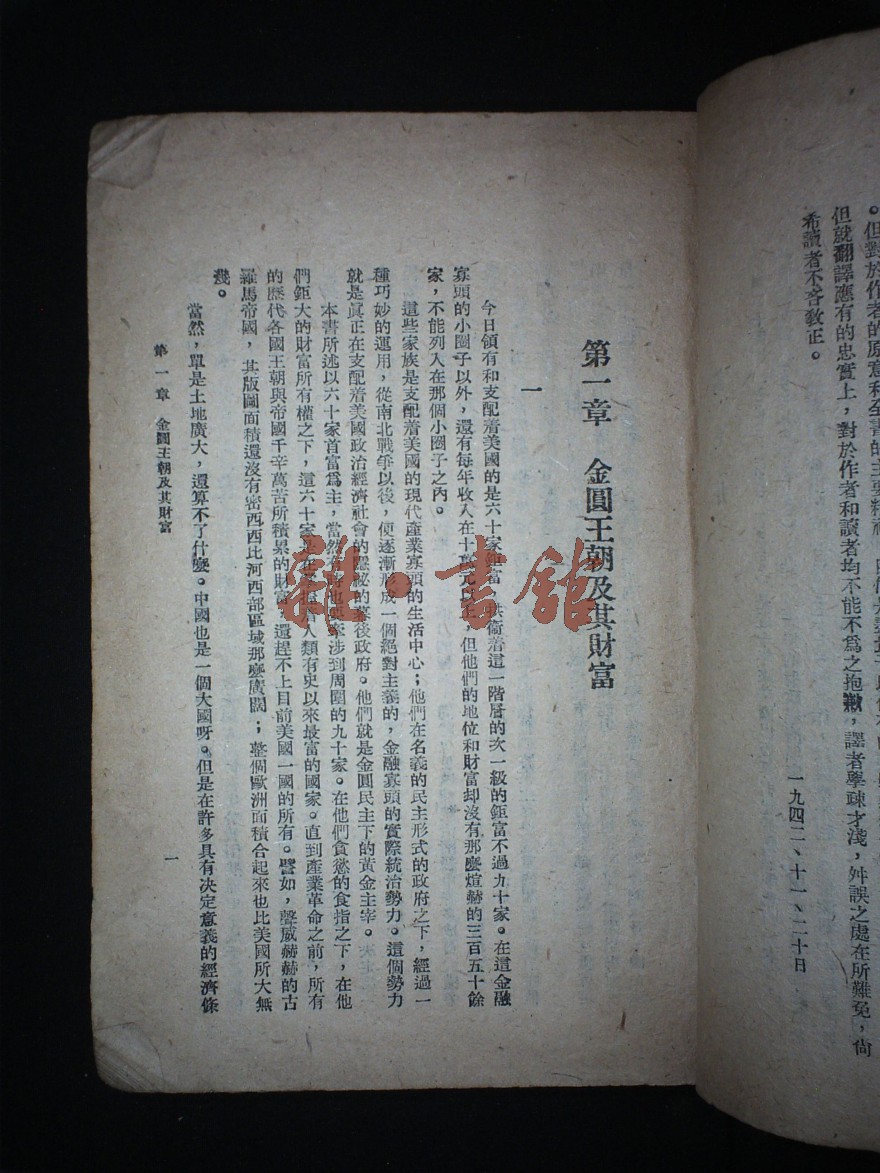 。但對於作者的原意和全書的主要精神，
但就翻譯應有的忠實上，對於作者和讀者均不能不爲之抱歉，譯者學疎才淺，舛誤之處在所難免，尙
希讀者不吝敎正。
一九四二、十一、二十日
第一章 金圓王朝及其財富
一
今日領有和支配着美國的是六十家鉅富，拱衞着這一階層的次一級的鉅富不過九十家。在這金融
寡頭的小圈子以外，還有每年收入在十萬元以上，但他們的地位和財富却沒有那麼煊赫的三百五十餘
家，不能列入在那個小圈子之內。
這些家族是支配着美國的現代產業寡頭的生活中心；他們在名義的民主形式的政府之下，經過一
種巧妙的運用，從南北戰爭以後，便逐漸形成一個絕對主義的，金融寡頭的實際統治勢力。這個勢力
就是眞正在支配着美國政治經濟社會的隱祕的幕後政府。他們就是金圓民主下的黃金主宰。
本書所述以六十家首富爲主，當然有時也要牽涉到周圍的九十家。在他們貪慾的食指之下，在他
們鉅大的財富所有權之下，這六十家是人類有史以來最富的國家。直到產業革命之前，所有
的歷代各國王朝與帝國千辛萬苦所積累的財富，還趕不上目前美國一國的所有。譬如，聲威赫赫的古
羅馬帝國，其版圖面積還沒有密西西比河西部區域那麼廣闊；整個歐洲面積合起來也比美國所大無
幾。
當然，單是土地廣大，還算不了什麼。中國也是一個大國呀。但是在許多具有決定意義的經濟條
第一章 金圓王朝及其財富
一
雜·書館